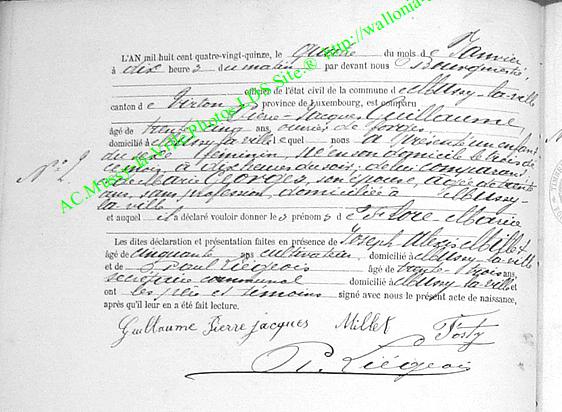 L'AN mil huit cent quatre-vingt-quinze, le quatre du mois de Janvier
à dix heures du matin par devant nous Bourguignon
officier de l'état civil de la commune de Mussy-la-ville
canton de Virton province de Luxembourg, est comparu
Pierre-Jacques Guillaume,
âgé de trente cinq ans, ouvrier de forges,
domicilié à Mussy-la-ville lequel nous a présenté un enfant
N° 2
du sexe féminin, né en son domicile le trois de
ce mois, à dix heures du soir, de lui comparant
et de Marie Georges épouse, âgée de trente
ans, sans profession, domiciliée à Mussy-
la-ville
et auquel il a déclaré vouloir donner les prénoms de Flore-Marie
Les dites déclaration et présentation faites en présence de Joseph Alexis Millet
âgé de cinquante ans cultivateur, domicilié à Mussy-la-ville
et de Paul Liégeois âgé de trente-trois ans,
secrétaire communal domicilié à Mussy-la-ville et
ont les père et témoins signé avec nous le présent acte de naissance,
après qu'il leur en a été fait lecture.
Guillaume Pierre Jacques Millet Fosty
P. Liégeois
AC.Mussy-la-Ville Photos LDS Site.® http://wallonia-